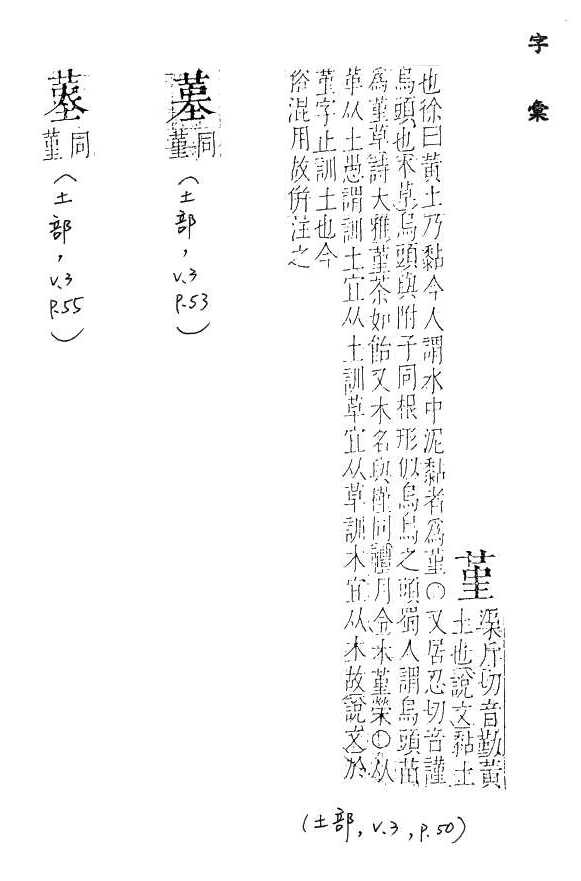 字彙
堇
渠斤切音勤黃
土也說文黏土
也徐曰黃土乃黏今人謂水中泥黏者為堇○又居忍切音謹
烏頭也本草烏頭與附子同根形似烏鳥之頭蜀人謂烏頭苗
為堇草詩大雅堇荼如飴又木名與槿同禮月令木堇榮○从
革从土愚謂訓土宜从土訓草宜从草訓木宜从木故說文於
堇字止訓土也今
俗混用故併註之
(土部, v.3, p.50)
同
堇
(土部, v.3 p.53)
同
堇
(土部, v.3 p.55)